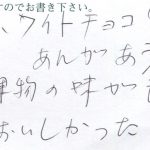 すのでお書き下さい。
ホワイトチョコ
あんがあ
果物の味が
おいしかった